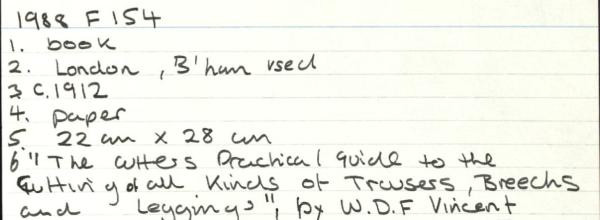 1988 F 154
1. book
2. London, B'ham used
3 C.1912
4. paper
5. 22 cm x 28 cm
6 "The cutters Practical Guide to the
Cutting of all Kinds of Trousers, Breechs
and Leggings", by W.D.F Vincent